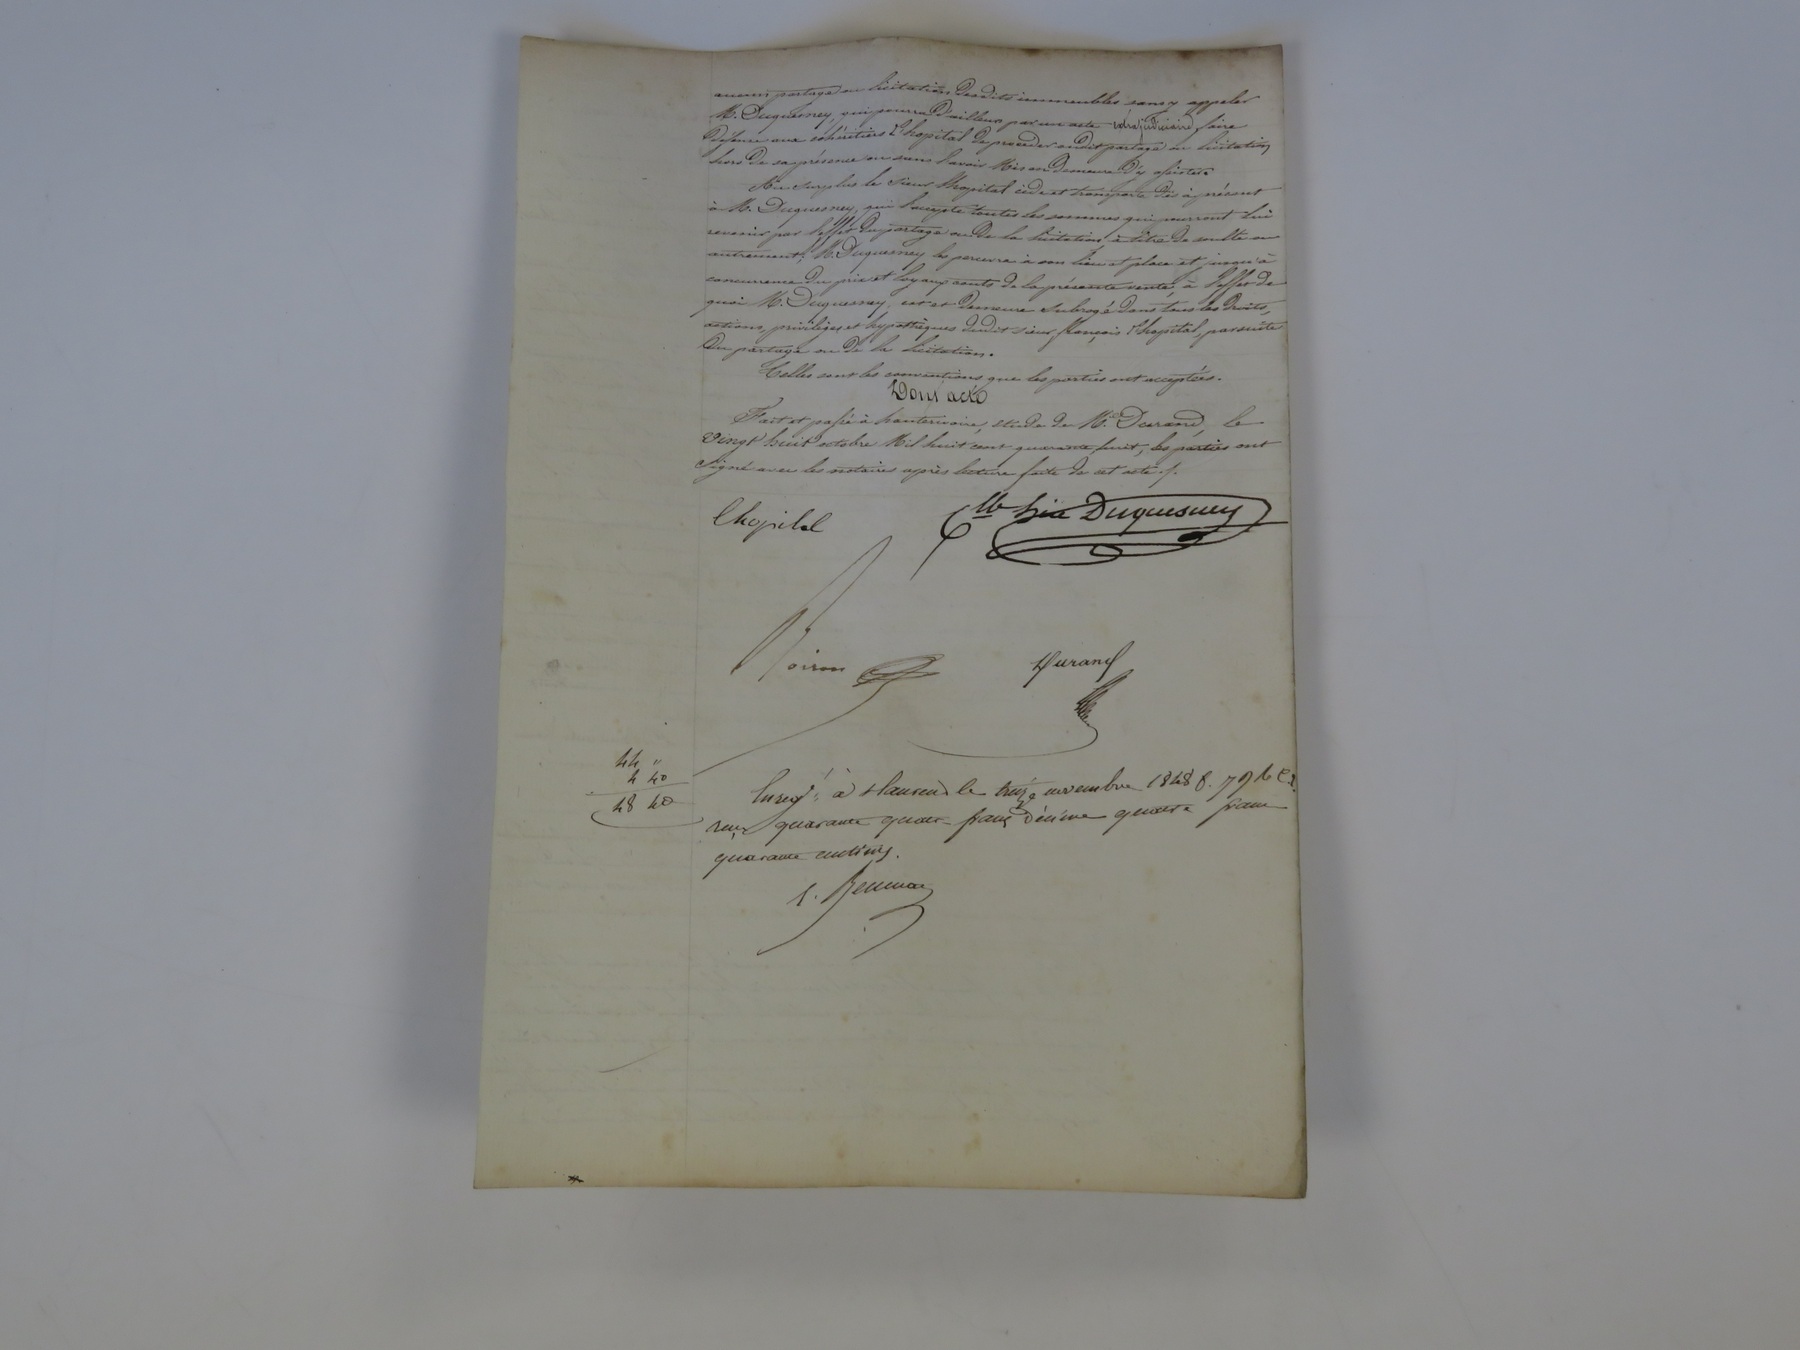 aucun partage ou licitation desdits immeubles sans y appeler
M. Duquesney, qui pourra d'ailleurs par un acte extrajudiciaire faire
défense aux cohéritiers L'hopital de procéder audit partage ou licitation
hors de sa présence ou sans l'avoir mis en demeure d'y assister.
Au surplus le sieur Lhopital cède et transporte dès à présent
à M. Duquesney, qui l'accepte toutes les sommes qui pourront lui
revenir par l'effet du partage ou de la licitation, à titre de soulte ou
autrement; M. Duquesney les percevra à son lieu et place et jusqu'à
concurrence du prix et loyaux couts de la présente vente, à l'effet de
quoi M. Duquesney, est et demeure subrogé dans tous les droits,
actions, privilèges et hypothèques dudit sieur françois L'hopital, par suite
du partage ou de la licitation.
Telles sont les conventions que les parties ont acceptées.
Dont acte
Fait et passé à hauterivoire, étude de Me Durand, le
vingt huit octobre Mil huit cent quarante huit, les parties ont
signé avec les notaires après lecture faite de cet acte ./.
Lhopital
Duquesney
Durand
44 "
4 40
48 40
Enregé à St laurent le treize novembre 1848 f. 79
reçu quarante quatre francs décime quatre francs
quarante centimes.